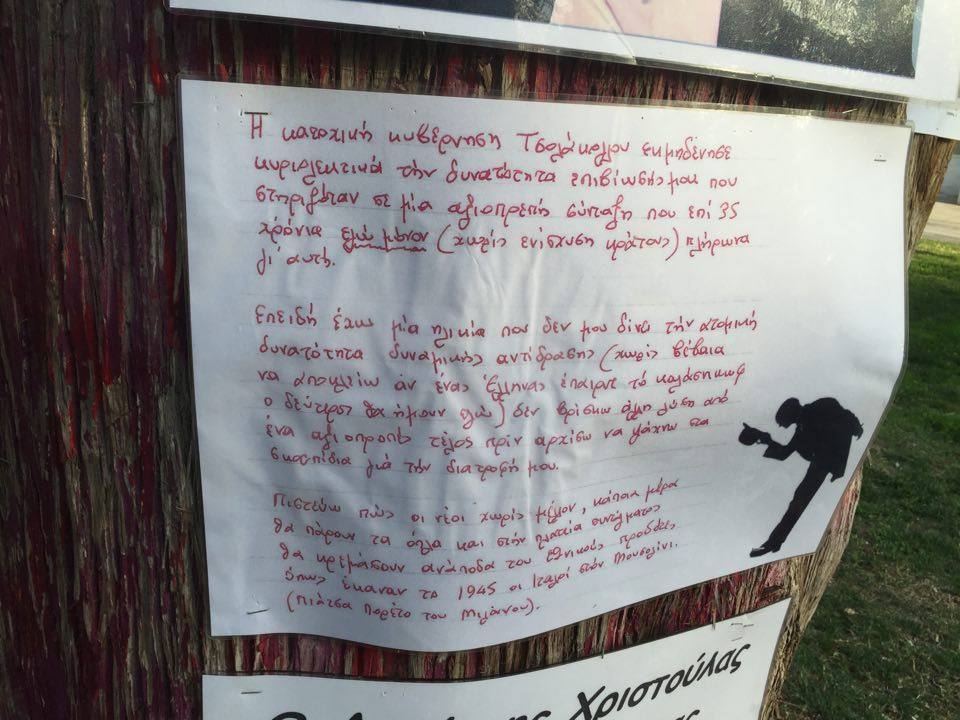 Η κατοχική κυβέρνηση Τσολάκογλου εκμηδένησε
κυριολεκτικά τήν δυνατότητα επιβίωσής μου που
στηριζόταν σε μία αξιοπρεπή σύνταξη που επί 35
χρόνια εγώ μόνον (χωρίς ενίσχυση κράτους) πλήρωνα
γι' αυτή.
Επειδή έχω μία ηλικία που δεν μου δίνει τήν ατομική
δυνατότητα δυναμικής αντίδρασης (χωρίς βέβαια
να αποκλείω άν ένας Έλληνας έπαιρνε τό καλάσνικωφ
ο δεύτερος θα ήμουν εγώ) δεν βρίσκω άλλη λύση από
ένα αξιοπρεπές τέλος πρίν αρχίσω να ψάχνω στα
σκουπίδια γιά τήν διατροφή μου.
Πιστεύω πώς οι νέοι χωρίς μέλλον, κάποια μέρα
θα πάρουν τα όπλα και στήν πλατεία συντάγματος
θα κρεμάσουν ανάποδα τους εθνικούς προδότες
όπως έκαναν το 1945 οι Ιταλοί στόν Μουσολίνι.
(Πιάτσα Πορέτο του Μιλάνου).
Χριστούλας